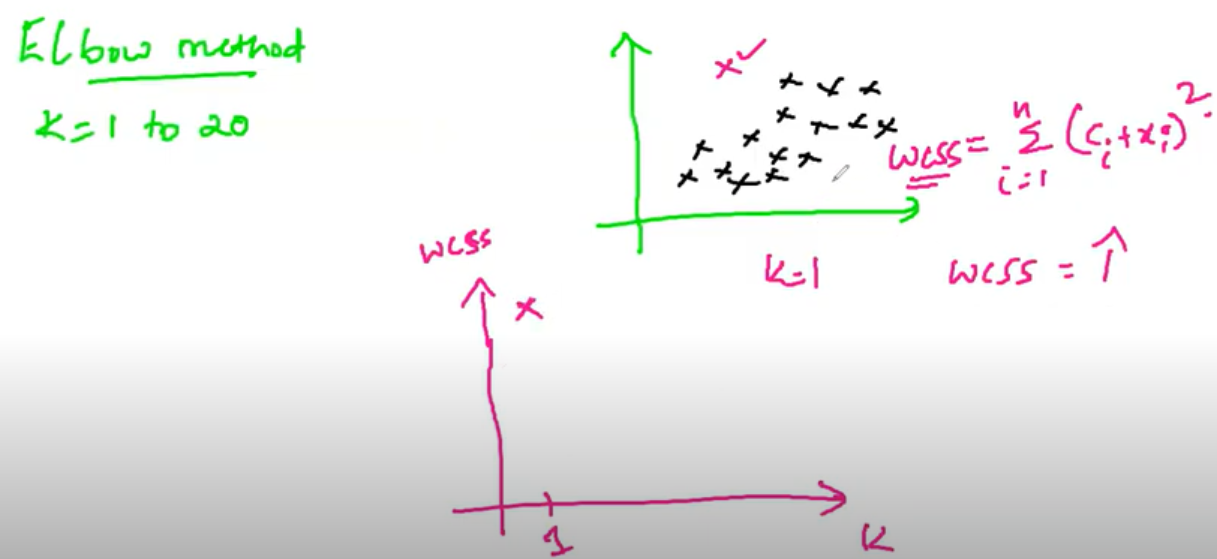 Elbow method
K=1 to 20
WCSS = n Σ i=1 (Ci+xi)²
K=1
WCSS = ↑
WCSS
1
K